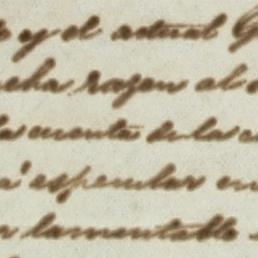 y el actual
cha razon al
la cuenta de la
a espender en
lamentable